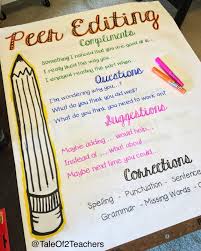 Peer Editing
Compliments
Something I noticed that you are good at is...
I really liked the way you...
I enjoyed reading the part when
Questions
I'm wondering why you...?
What do you think you did well?
What do you think you need to work on?
Suggestions
Maybe adding... would help...
Instead of... what about...
Maybe next time you could...
Corrections
Spelling - Punctuation - Sentence
Grammar - Missing Words - C
@TaleOf2Teachers